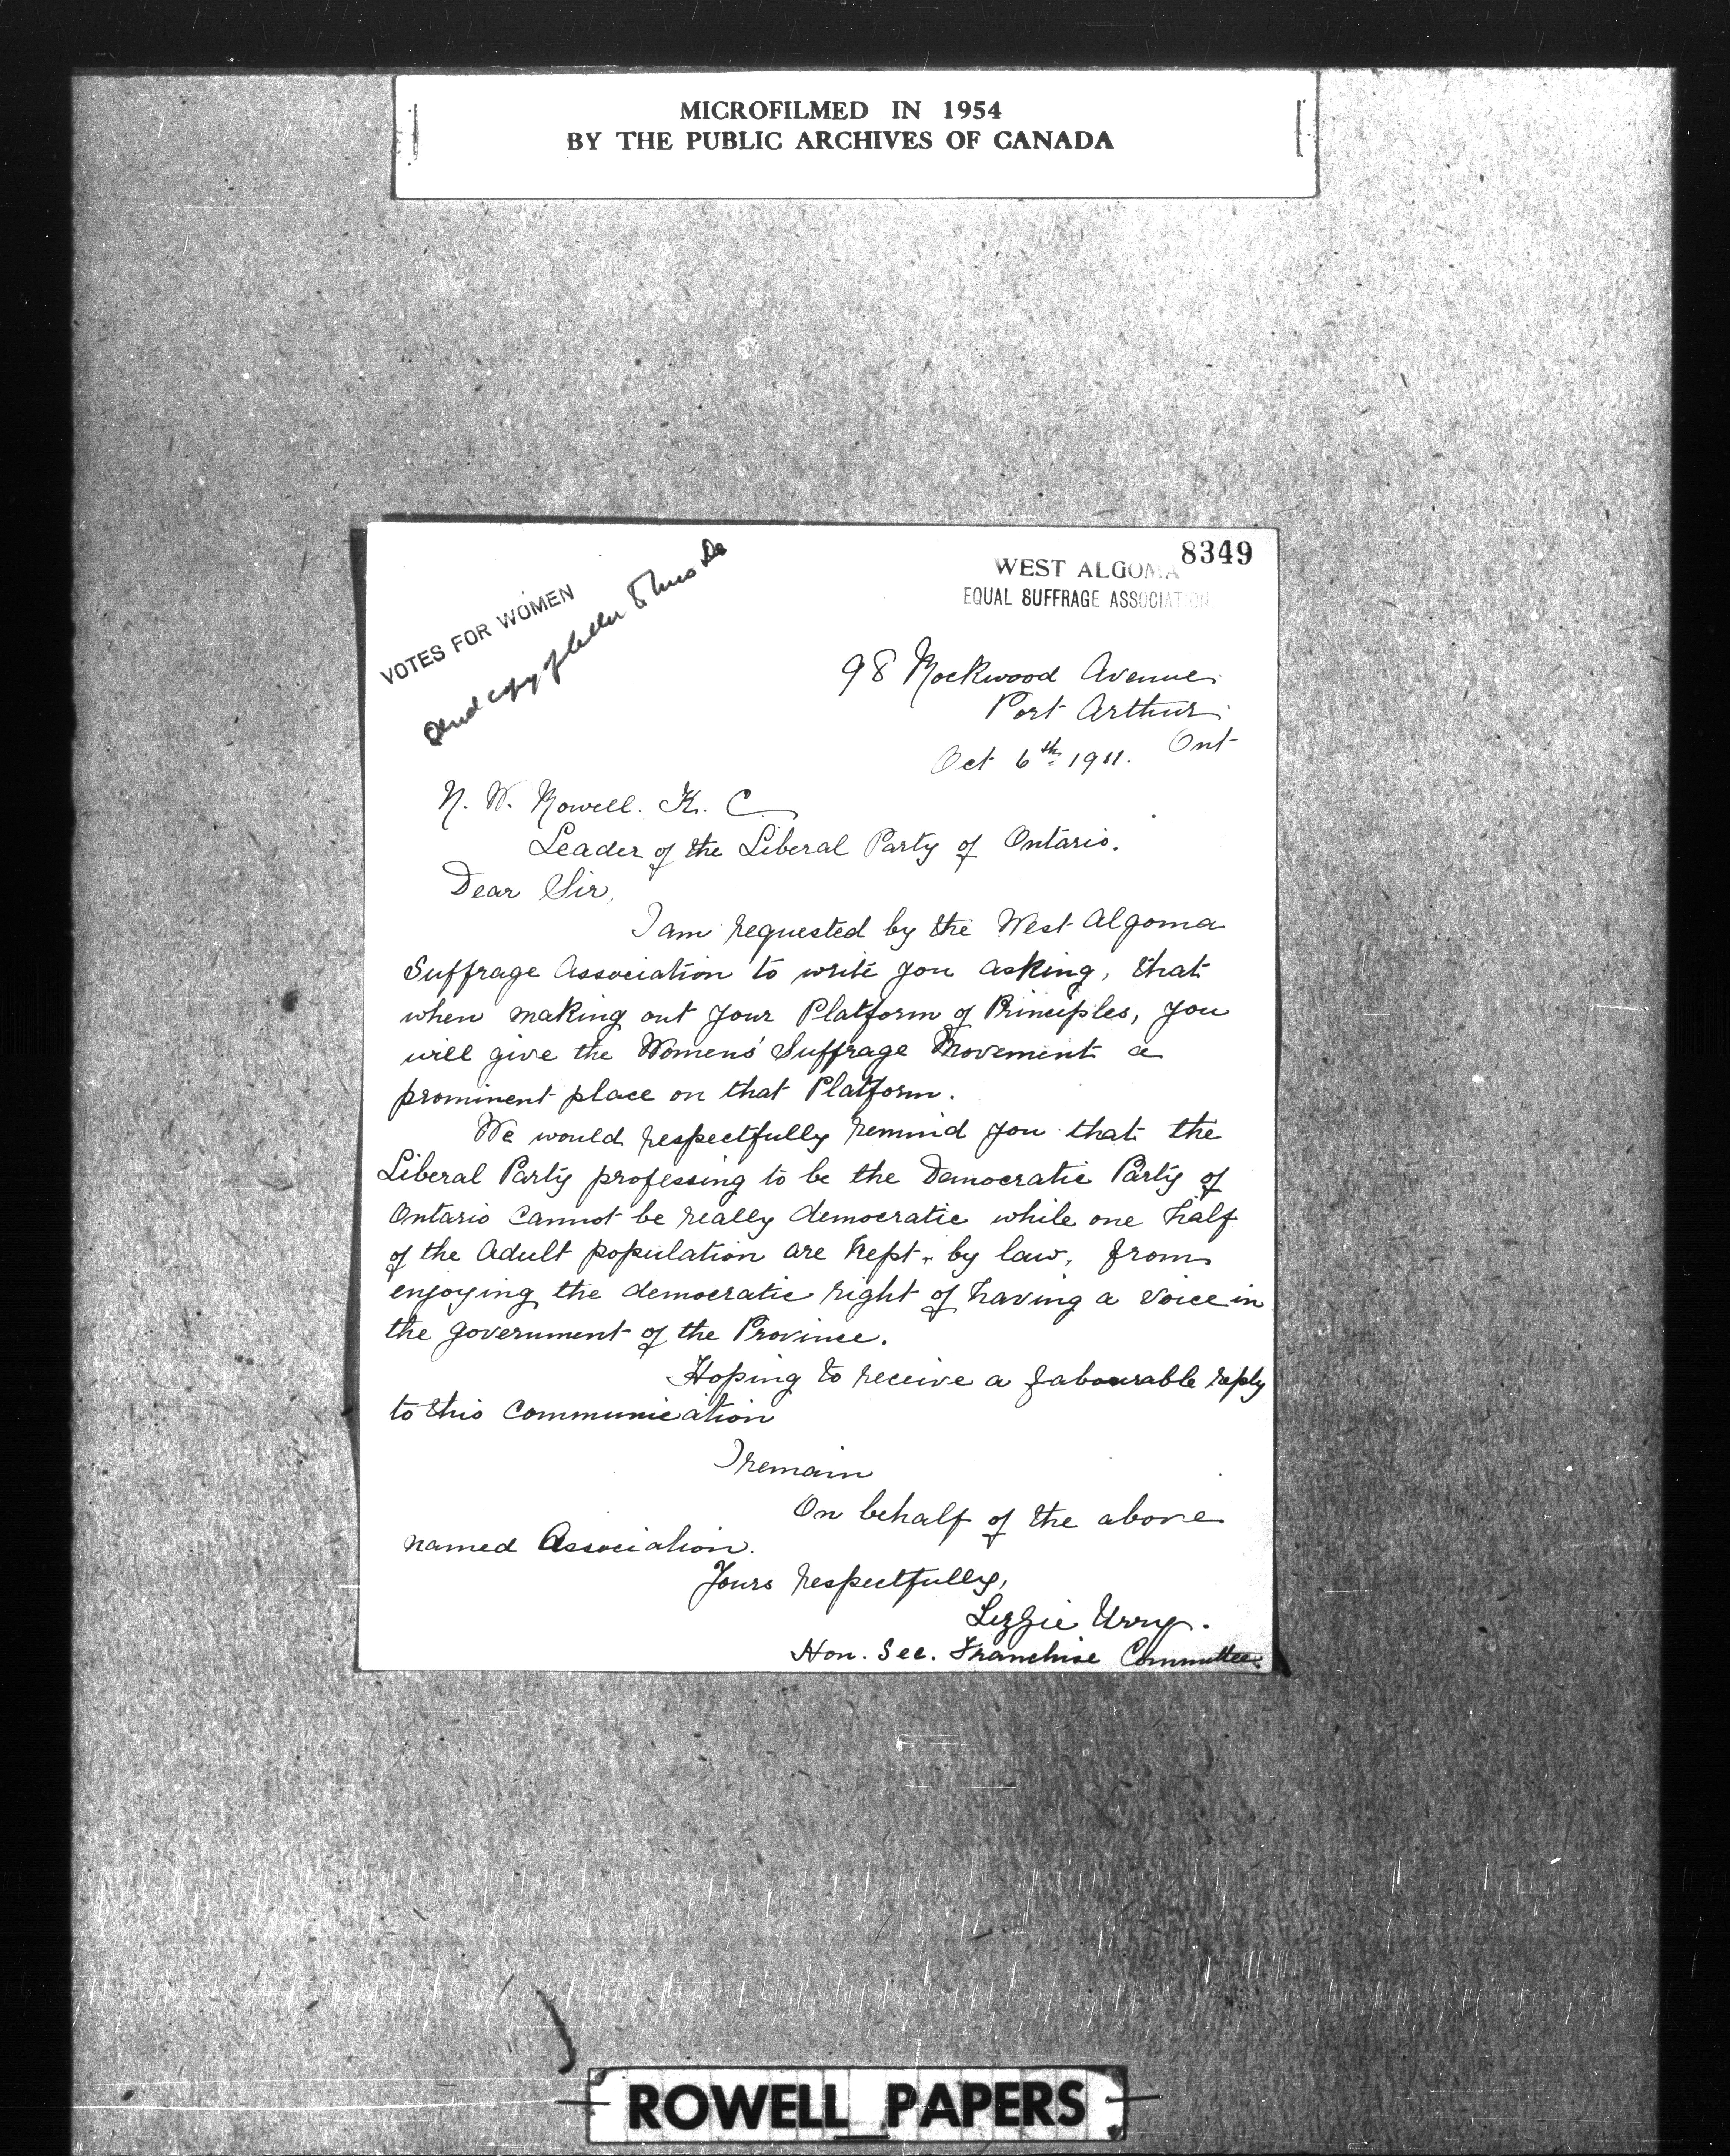 MICROFILMED IN 1954
BY THE PUBLIC ARCHIVES OF CANADA
8349
WEST ALGOMA
EQUAL SUFFRAGE ASSOCIATION
VOTES FOR WOMEN
Send copy of letter
98 Rockwood Avenue
Port Arthur
Ont
Oct 6th 1911.
N. W. Rowell. K. C
Leader of the Liberal Party of Ontario.
Dear Sir,
I am requested by the West Algoma
Suffrage Association to write you asking, that
when making out your Platform of Principles, you
will give the Womens' Suffrage Movement a
prominent place on that Platform.
We would respectfully remind you that the
Liberal Party professing to be the Democratic Party of
Ontario cannot be really democratic while one half
of the adult population are kept, by law, from
enjoying the democratic right of having a voice in
the government of the Province.
Hoping to receive a favourable reply
to this communication
I remain
On behalf of the above
named Association.
Yours respectfully,
Lizzie Urry.
Hon. Sec. Franchise Committee
ROWELL PAPERS